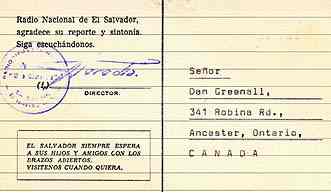 Radio Nacional de El Salvador,
agradece su reporte y sintonía.
Siga escuchándonos.
DIRECTOR.
EL SALVADOR SIEMPRE ESPERA
A SUS HIJOS Y AMIGOS CON LOS
BRAZOS ABIERTOS.
VISITENOS CUANDO QUIERA.
Señor
Dan Greenall,
341 Robina Rd.,
Ancaster, Ontario,
C A N A D A